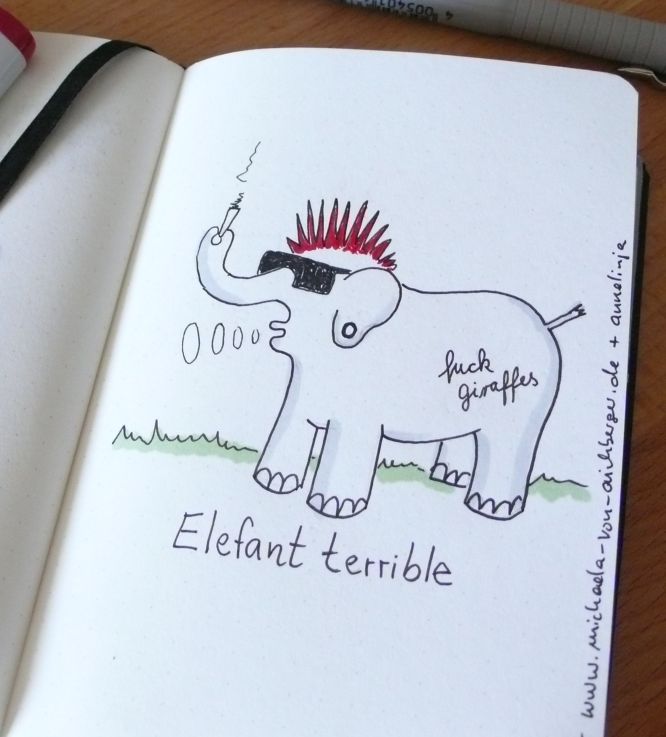 fuck
giraffes
Elefant terrible
www.michaela-von-aichberger.de + annalinja